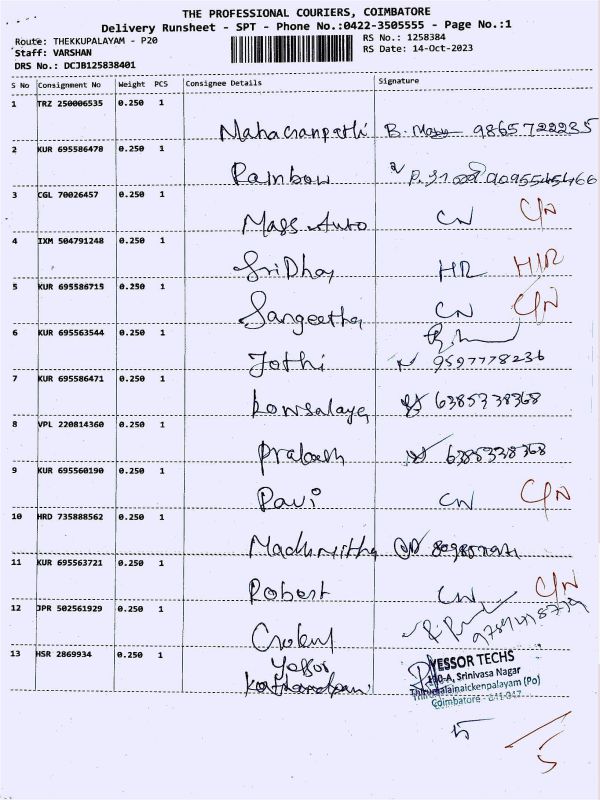 THE PROFESSIONAL COURIERS, COIMBATORE
Delivery Runsheet - SPT - Phone No.:0422-3505555 - Page No.:1
Route: THEKKUPALAYAM - P20
RS No.: 1258384
Staff: VARSHAN
RS Date: 14-Oct-2023
DRS No.: DCJB125838401
S No Consignment No Weight PCS Consignee Details Signature
1 TRZ 250006535 0.250 1
9865722235
2 KUR 695586478 0.250 1
Rainbow
3 CGL 70026457 0.250 1
Mass Auto CN C/N
4 IXM 504791248 0.250 1
HR H/R
5 KUR 695586715 0.250 1
Sangeetha CN C/N
6 KUR 695563544 0.250 1
Jothi 9597778236
7 KUR 695586471 0.250 1
Kowsalaya 6385338368
8 VPL 220814360 0.250 1
Prakash 6385338368
9 KUR 695560190 0.250 1
Ravi CN C/N
10 HRD 735888562 0.250 1
Madhumitha
11 KUR 695563721 0.250 1
Robert CN C/N
12 JPR 502561929 0.250 1
13 HSR 2869934 0.250 1
YESSOR TECHS
Srinivasa Nagar
Coimbatore
15